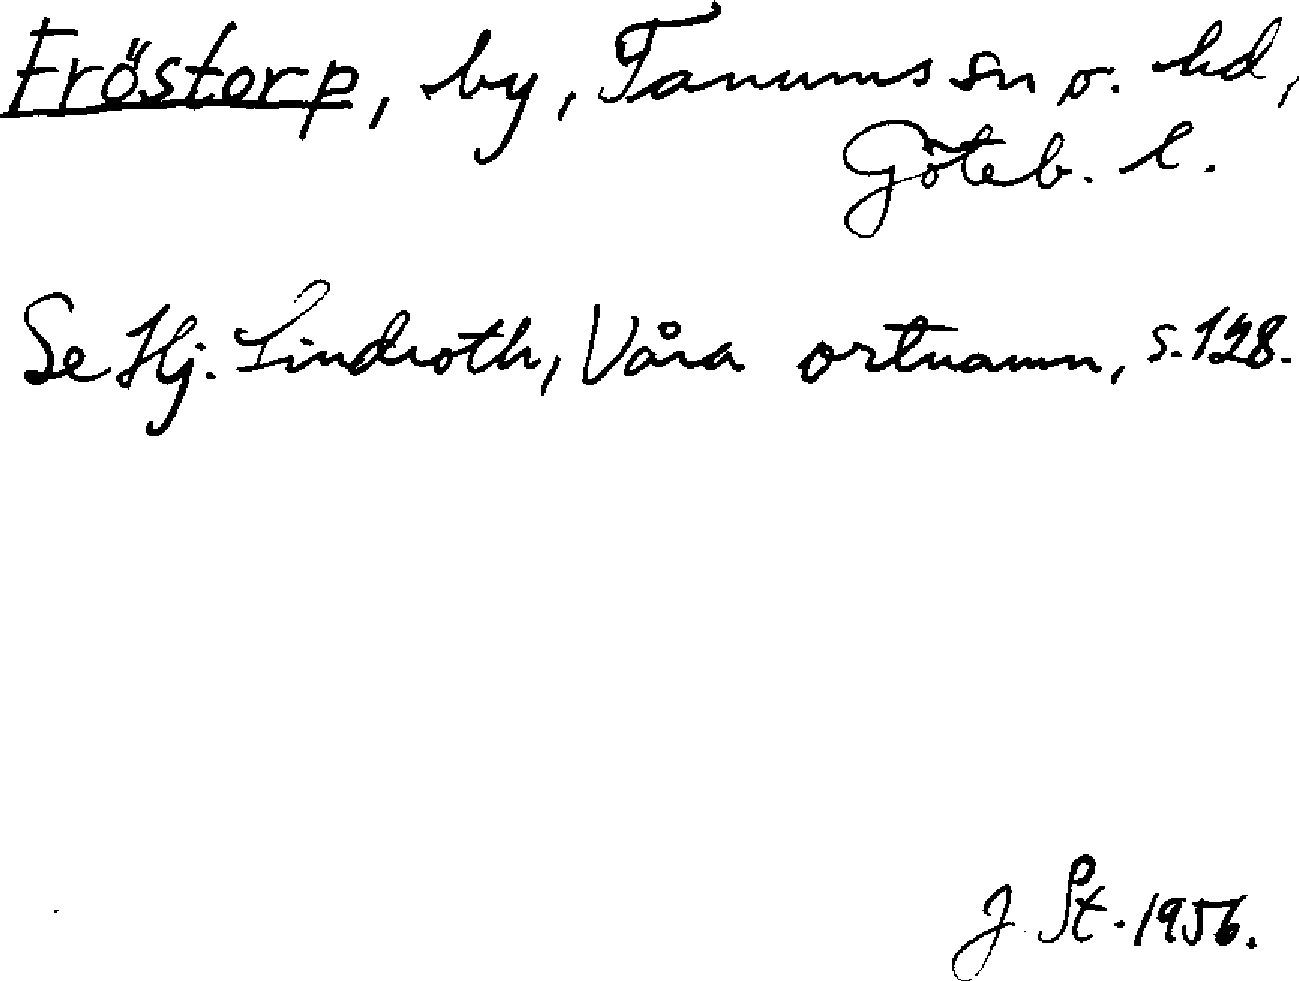 Fröstorp, by, Tanums sn o. hd,
Göteb. l.
Se Hj. Lindroth, Våra ortnamn, s. 128.
J. St. 1956.